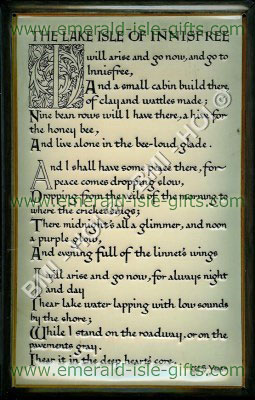 www.emerald-isle-gifts.com
THE LAKE ISLE OF INNISFREE
I will arise and go now, and go to
Innisfree,
And a small cabin build there
of clay and wattles made;
Nine bean rows will I have there, a hive for
the honey bee,
And live alone in the bee-loud glade.
And I shall have some peace there, for
peace comes dropping slow,
Dropping from the veils of the morning to
where the cricket sings;
There midnight's all a glimmer, and noon
a purple glow,
And evening full of the linnet's wings
I will arise and go now, for always night
and day
I hear lake water lapping with low sounds
by the shore;
While I stand on the roadway, or on the
pavements gray,
I hear it in the deep heart's core.
W.B. Yeats
www.emerald-isle-gifts.com